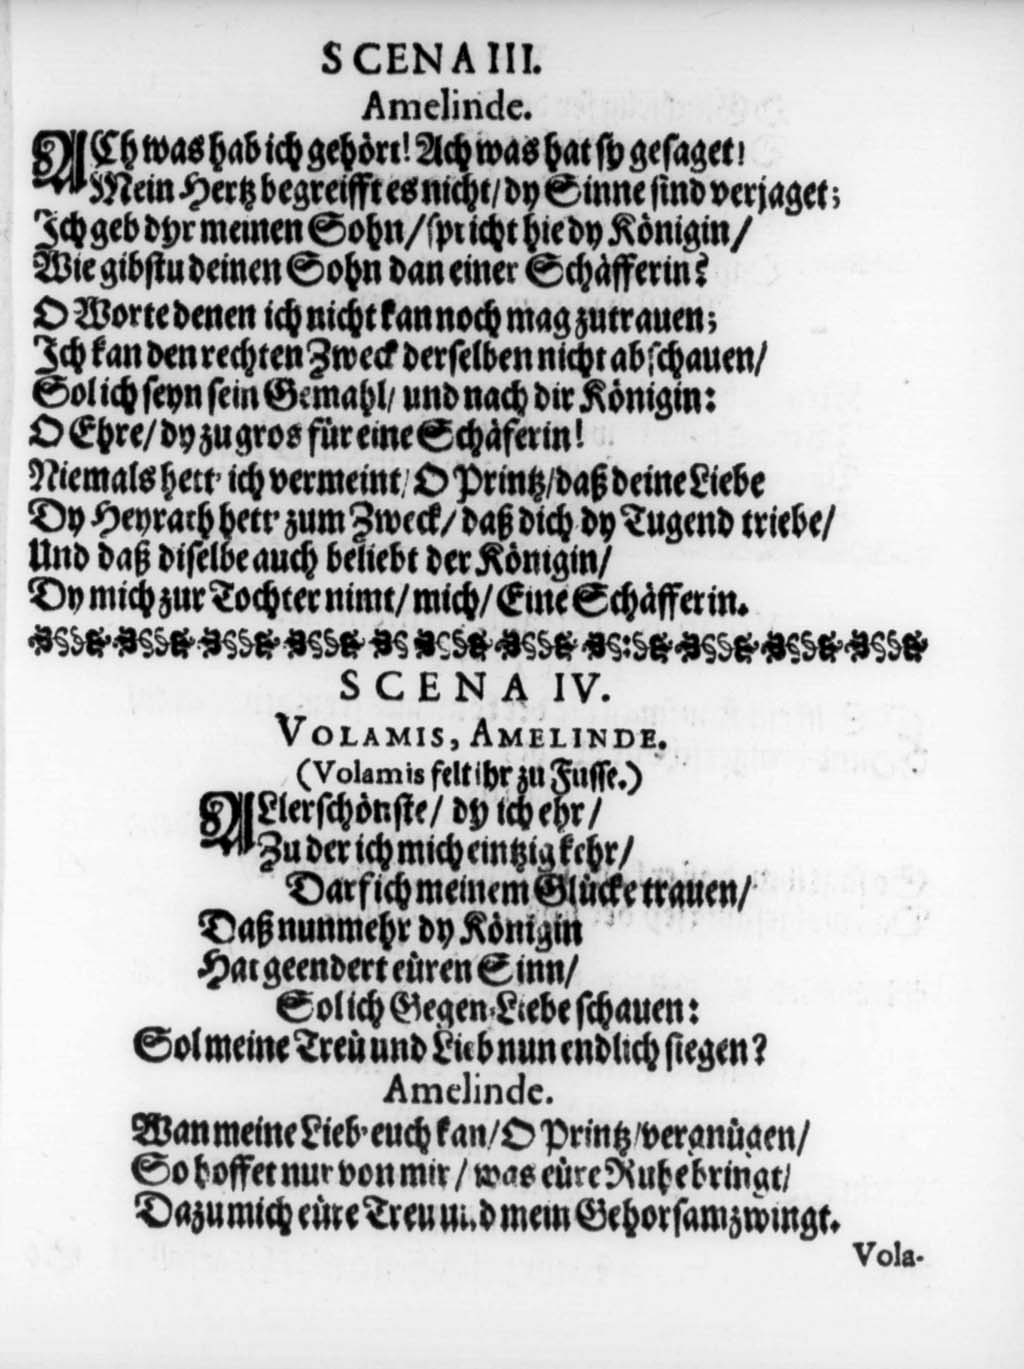 SCENA III.
Amelinde.
ACh was hab ich gehört! Ach was hat sy gesaget!
Mein Hertz begreifft es nicht/ dy Sinne sind verjaget;
Ich geb dyr meinen Sohn/ spricht hie dy Königin/
Wie gibstu deinen Sohn dan einer Schäfferin?
O Worte denen ich nicht kan noch mag zutrauen;
Ich kan den rechten Zweck derselben nicht abschauen/
Sol ich seyn sein Gemahl/ und nach dir Königin:
O Ehre/ dy zu gros für eine Schäferin!
Niemals hett' ich vermeint/ O Printz/ daß deine Liebe
Dy Heyrath hett' zum Zweck/ daß dich dy Tugend triebe/
Und daß diselbe auch beliebt der Königin/
Dy mich zur Tochter nimt/ mich/ Eine Schäfferin.
SCENA IV.
VOLAMIS, AMELINDE.
(Volamis felt ihr zu Fusse.)
ALlerschönste/ dy ich ehr/
Zu der ich mich eintzig kehr/
Darf ich meinem Glücke trauen/
Daß nunmehr dy Königin
Hat geendert eüren Sinn/
Sol ich Gegen-Liebe schauen:
Sol meine Treü und Lieb nun endlich siegen?
Amelinde.
Wan meine Lieb' euch kan/ O Printz/ vergnügen/
So hoffet nur von mir/ was eüre Ruhe bringt/
Dazu mich eüre Treu und mein Gehorsam zwingt.
Vola-